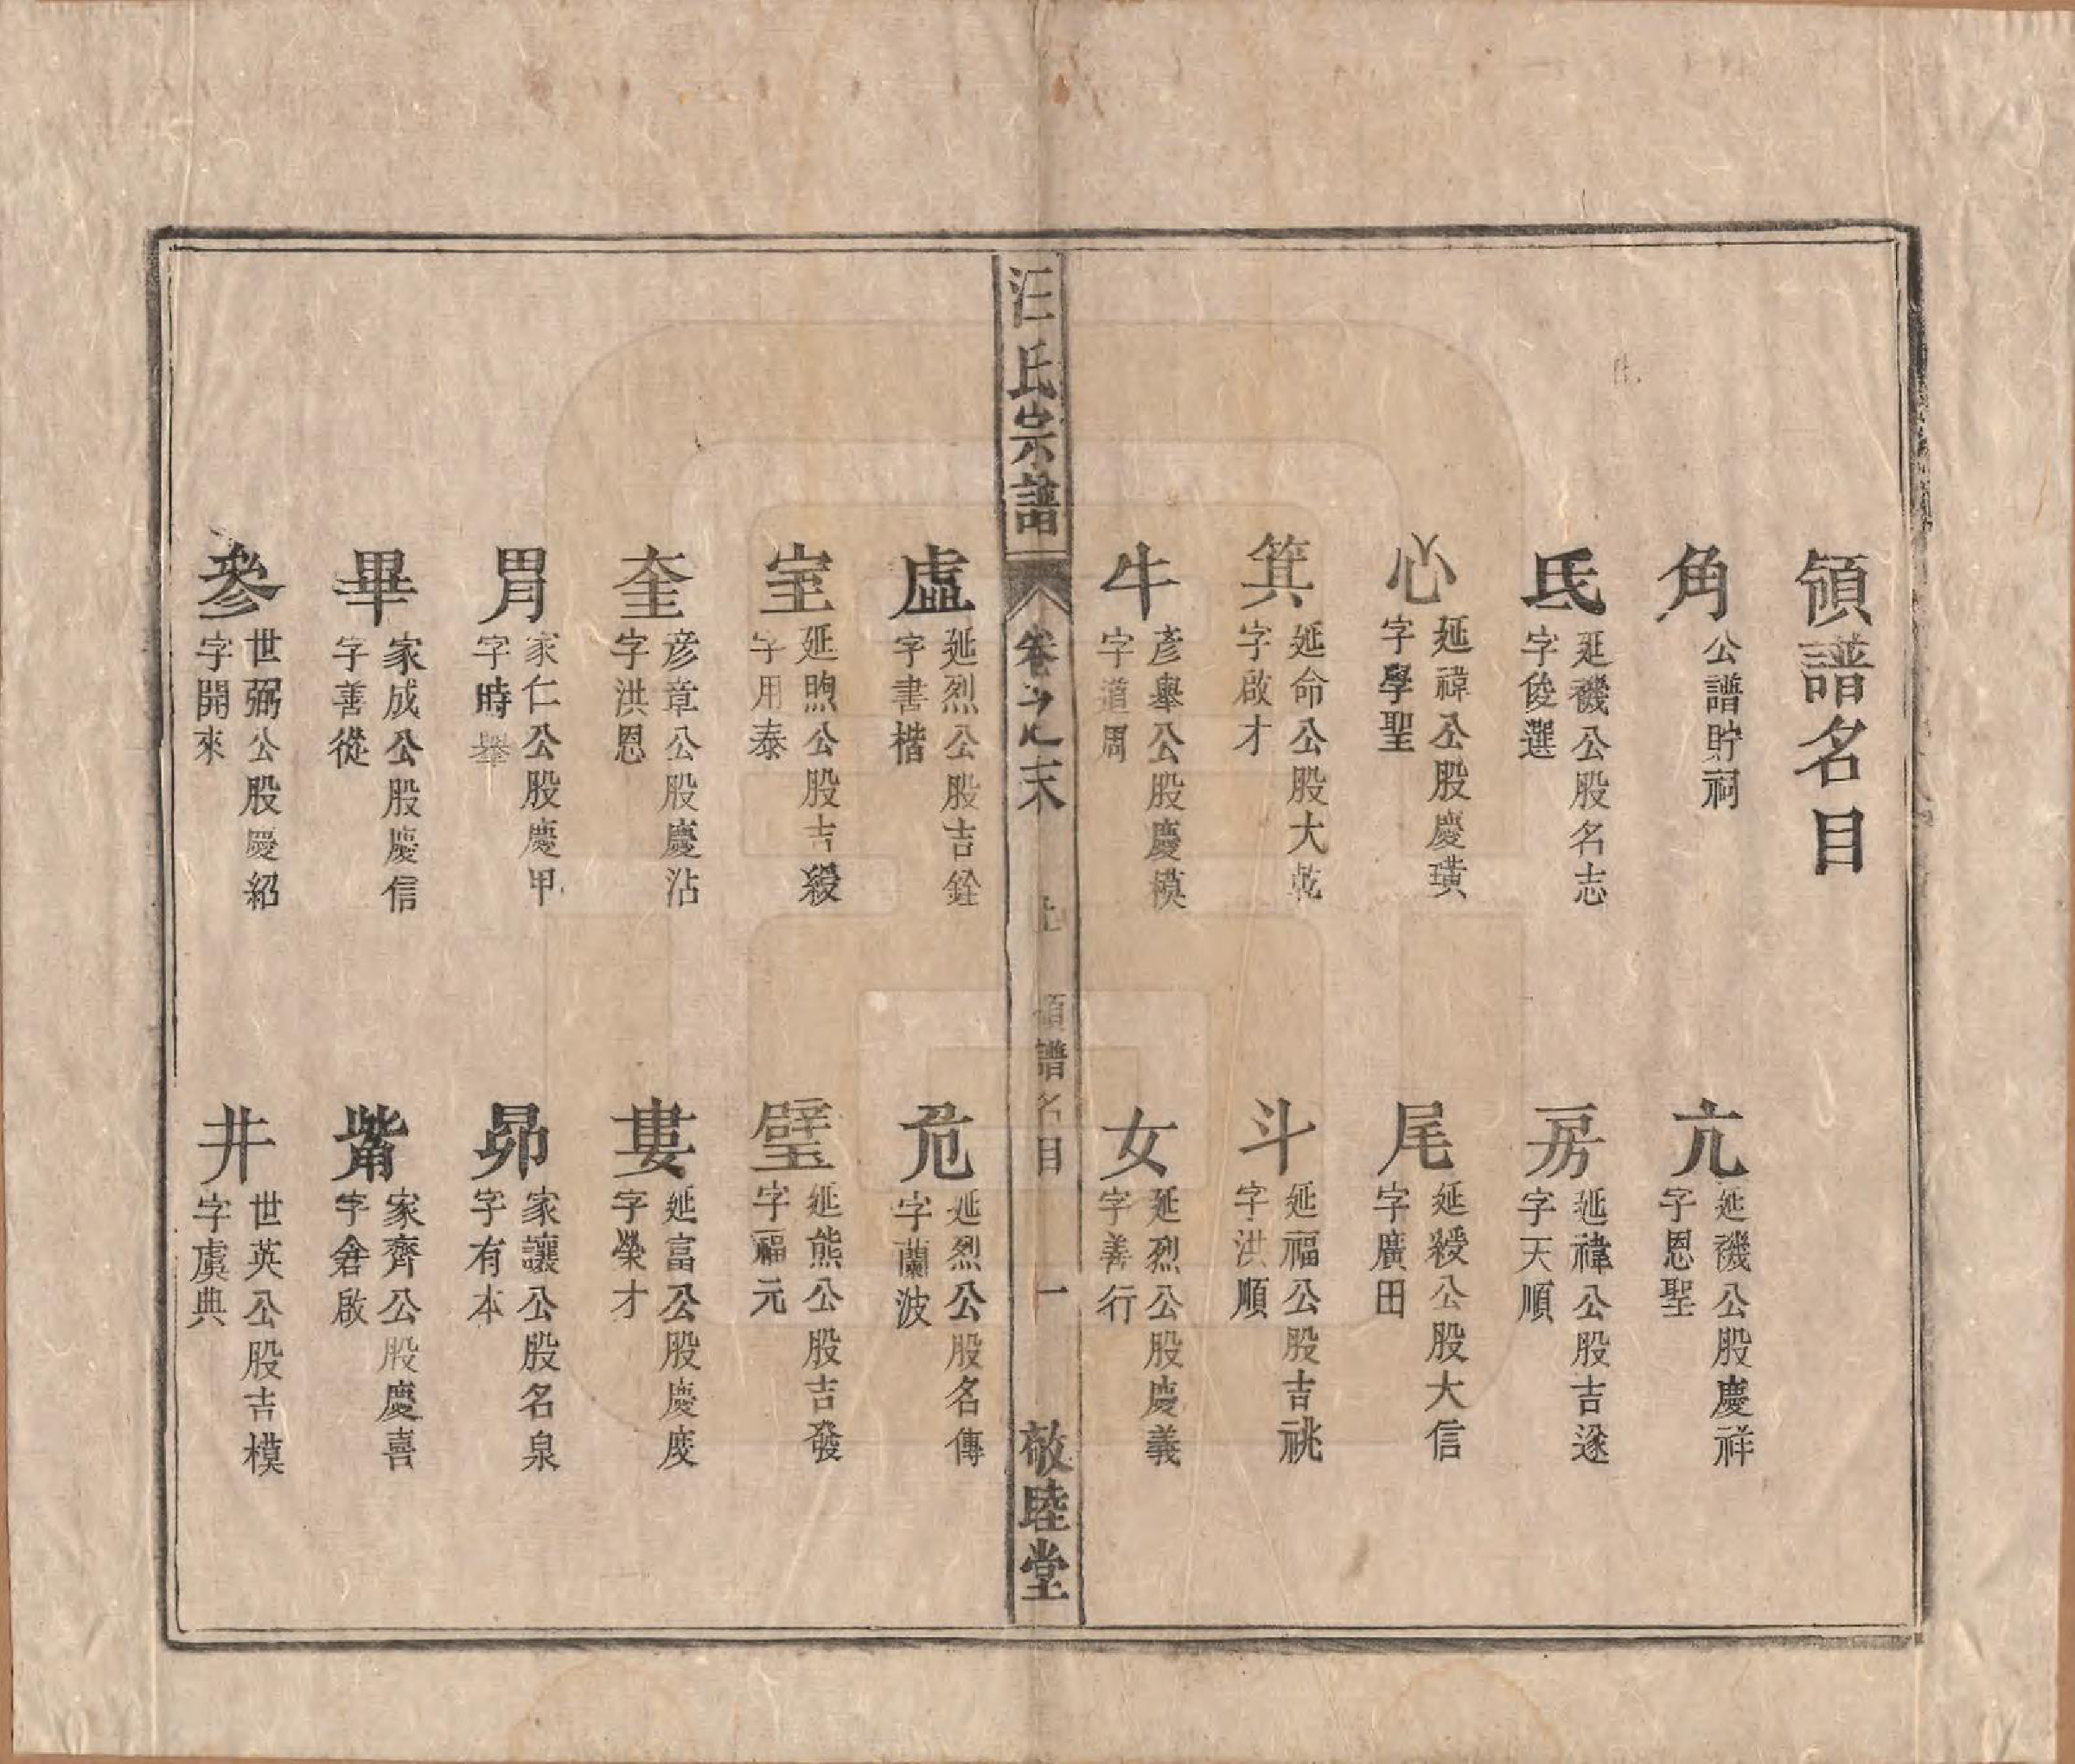 領譜名目
角
公譜貯祠
亢
延禨公股慶祥
字恩聖
氐
延禨公股名志
字俊選
房
延禕公股吉遂
字天順
心
延禕公股慶璜
字學聖
尾
延綬公股大信
字廣田
箕
延命公股大乾
字啟才
斗
延福公股吉祧
字洪順
牛
彥舉公股慶模
字道周
女
延烈公股慶義
字善行
汪氏宗譜
卷之末
上
領譜名目
一
敬睦堂
虛
延烈公股吉銓
字書楷
危
延烈公股名傳
字蘭波
室
延煦公股吉綬
字用泰
璧
延熊公股吉發
字福元
奎
彦章公股慶沾
字洪恩
婁
延富公股慶度
字榮才
胃
家仁公股慶甲
字時舉
昴
家讓公股名泉
字有本
畢
家成公股慶信
字善從
觜
家齊公股慶喜
字倉啟
參
世弼公股慶紹
字開來
井
世英公股吉模
字虞典